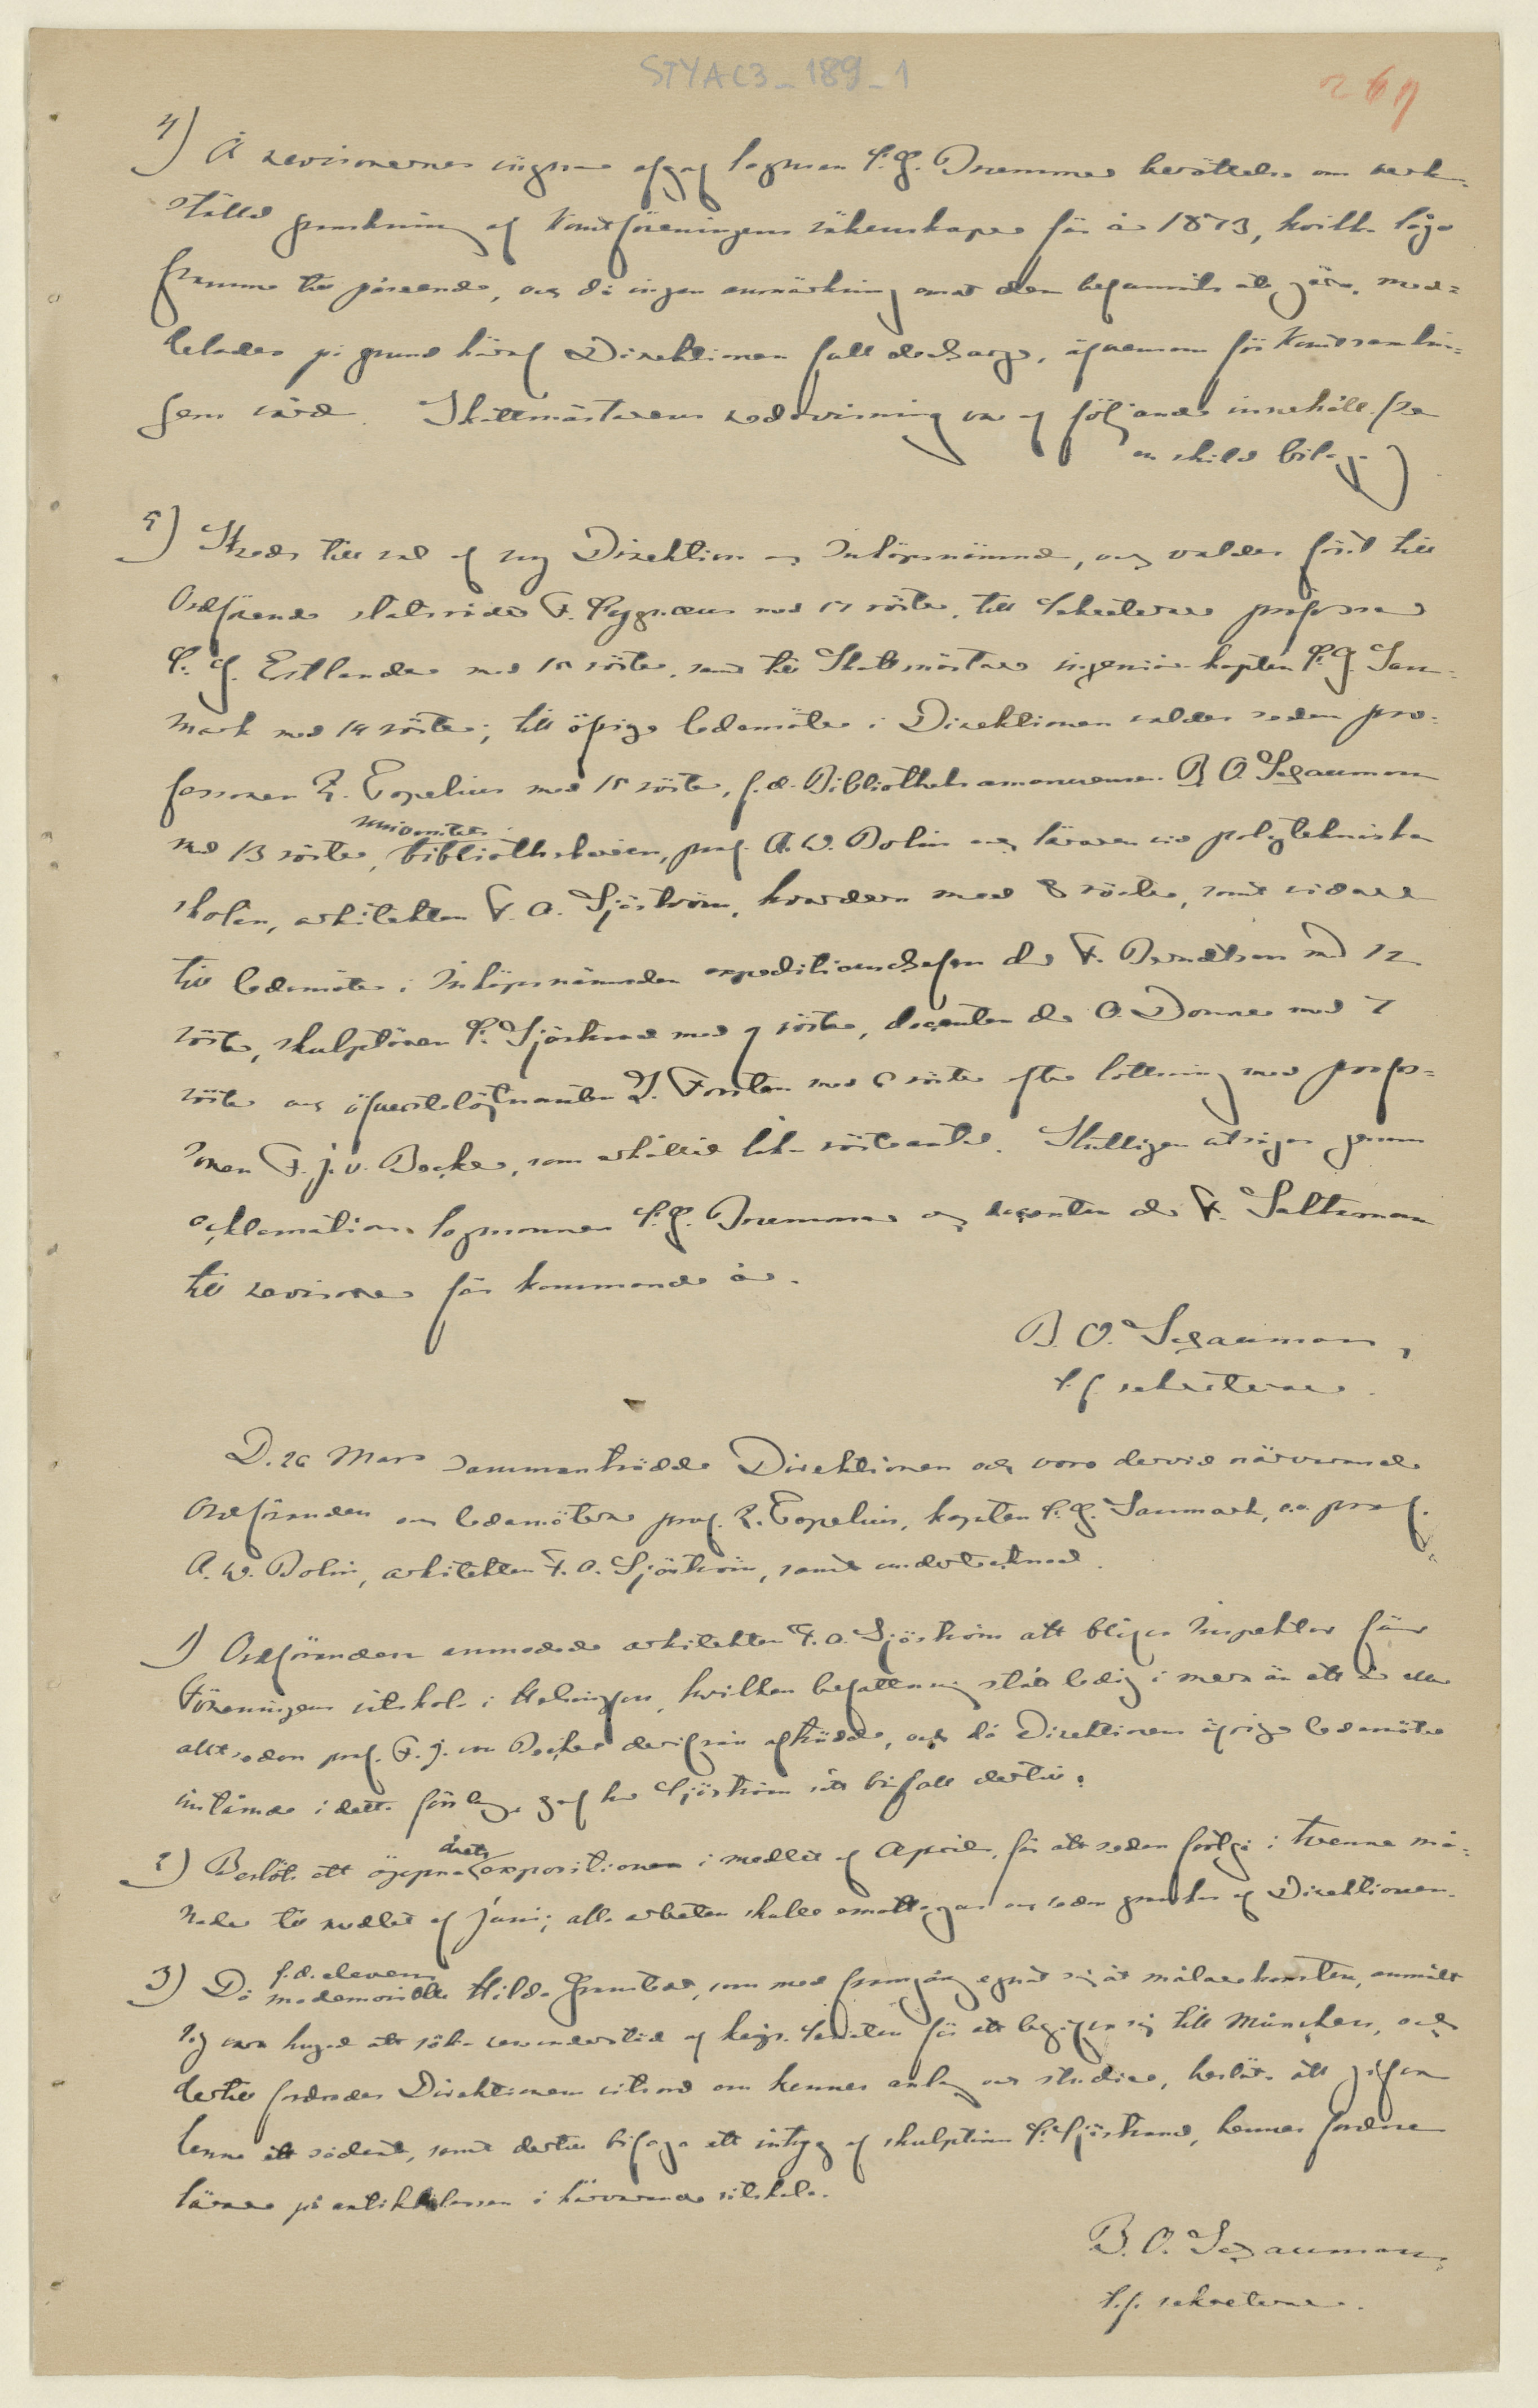 STYAC3_189_1
269
4) Å revisorernes vägnar afgaf lagman C. G. Tremmer berättelse om verk-
ställd granskning af Konstföreningens räkenskaper för år 1873, hvilka lågo
framme till påseende, och då ingen anmärkning emot dem befunnits att göra, med-
delades på grund häraf Direktionen full decharge, äfvensom för Konstsamlin-
gens vård. Skattmästarens redovisning var af följande innehåll (se
en skild bilaga)
5) Skreds till val af ny Direktion och Inköpsnämnd, och valdes först till
Ordförande statsrådet F. Cygnæus med 17 röster, till Sekreterare professor
C. G. Estlander med 15 röster, samt till Skattmästare ingeniör-kapten C. G. San-
mark med 14 röster; till öfrige ledamöter i Direktionen valdes sedan pro-
fessoren Z. Topelius med 15 röster, f. d. Bibliotheks amanuensen B. O. Schauman
med 13 röster, universitets
bibliothekarien, prof. A. W. Bolin och läraren vid polytekniska
skolan, arkitekten F. A. Sjöström, hvardera med 8 röster, samt vidare
till ledamöter i Inköpsnämnden expeditionschefen dr F. Berndtson med 12
röster, skulptören C. Sjöstrand med 9 röster, docenten dr O. Donner med 7
röster och öfverstelöjtnanten L. Forstén med 6 röster efter lottning med profes-
soren F. J. v. Becker, som erhållit lika röstantal. Slutligen utsågos genom
acklamation lagmannen C. G. Tremmer och docenten dr F. Saltzman
till revisorer för kommande år.
B. O. Schauman,
t. f. sekreterare.
D. 26 Mars sammanträdde Direktionen och voro dervid närvarande
Ordföranden och ledamöterne prof. Z. Topelius, kapten C. G. Sanmark, e.o. prof.
A. W. Bolin, arkitekten F. A. Sjöström, samt undertecknad.
1) Ordföranden anmodade arkitekten F. A. Sjöström att blifva Inspektor för
Föreningens ritskola i Helsingfors, hvilken befattning stått ledig i mera än ett år eller
alltsedan prof. F. J. von Becker derifrån afträdde, och då Direktionens öfriga ledamöter
instämde i detta förslag, gaf hr Sjöström sitt bifall dertill.
2) Beslöts att öppna årets expositionen i medlet af April, för att sedan fortgå i tvenne må-
nader till medlet af Juni; alla arbeten skulle emottagas och sedan granskas af Direktionen.
3) Då f. d. eleven
mademoiselle Hilda Granstedt, som med framgång egnat sig åt målarekonsten, anmält
sig vara hugad att söka reseunderstöd af kejs. Senaten för att begifva sig till München, och
dertill fordrades Direktionens vitsord om hennes anlag och studier, beslöts att gifva
henne ett sådant, samt dertill bifoga ett intyg af skulptören C. Sjöstrand, hennes fordne
lärare på antikklassen i härvarande ritskola.
B. O. Schauman,
t. f. sekreterare.